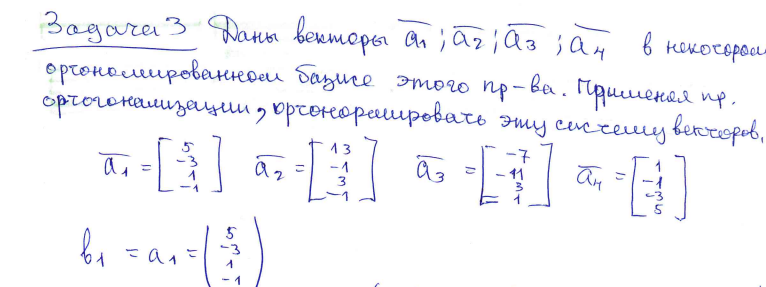 Задача 3 Даны векторы a1 ; a2 ; a3 ; a4 в некотором
ортономированном базисе этого пр-ва. Применяя пр.
ортогонализации, ортонормировать эту систему векторов.
a1 = [5 -3 1 -1] a2 = [13 -1 3 -1] a3 = [-7 -11 3 1] a4 = [1 -1 -3 5]
b1 = a1 = (5 -3 1 -1)